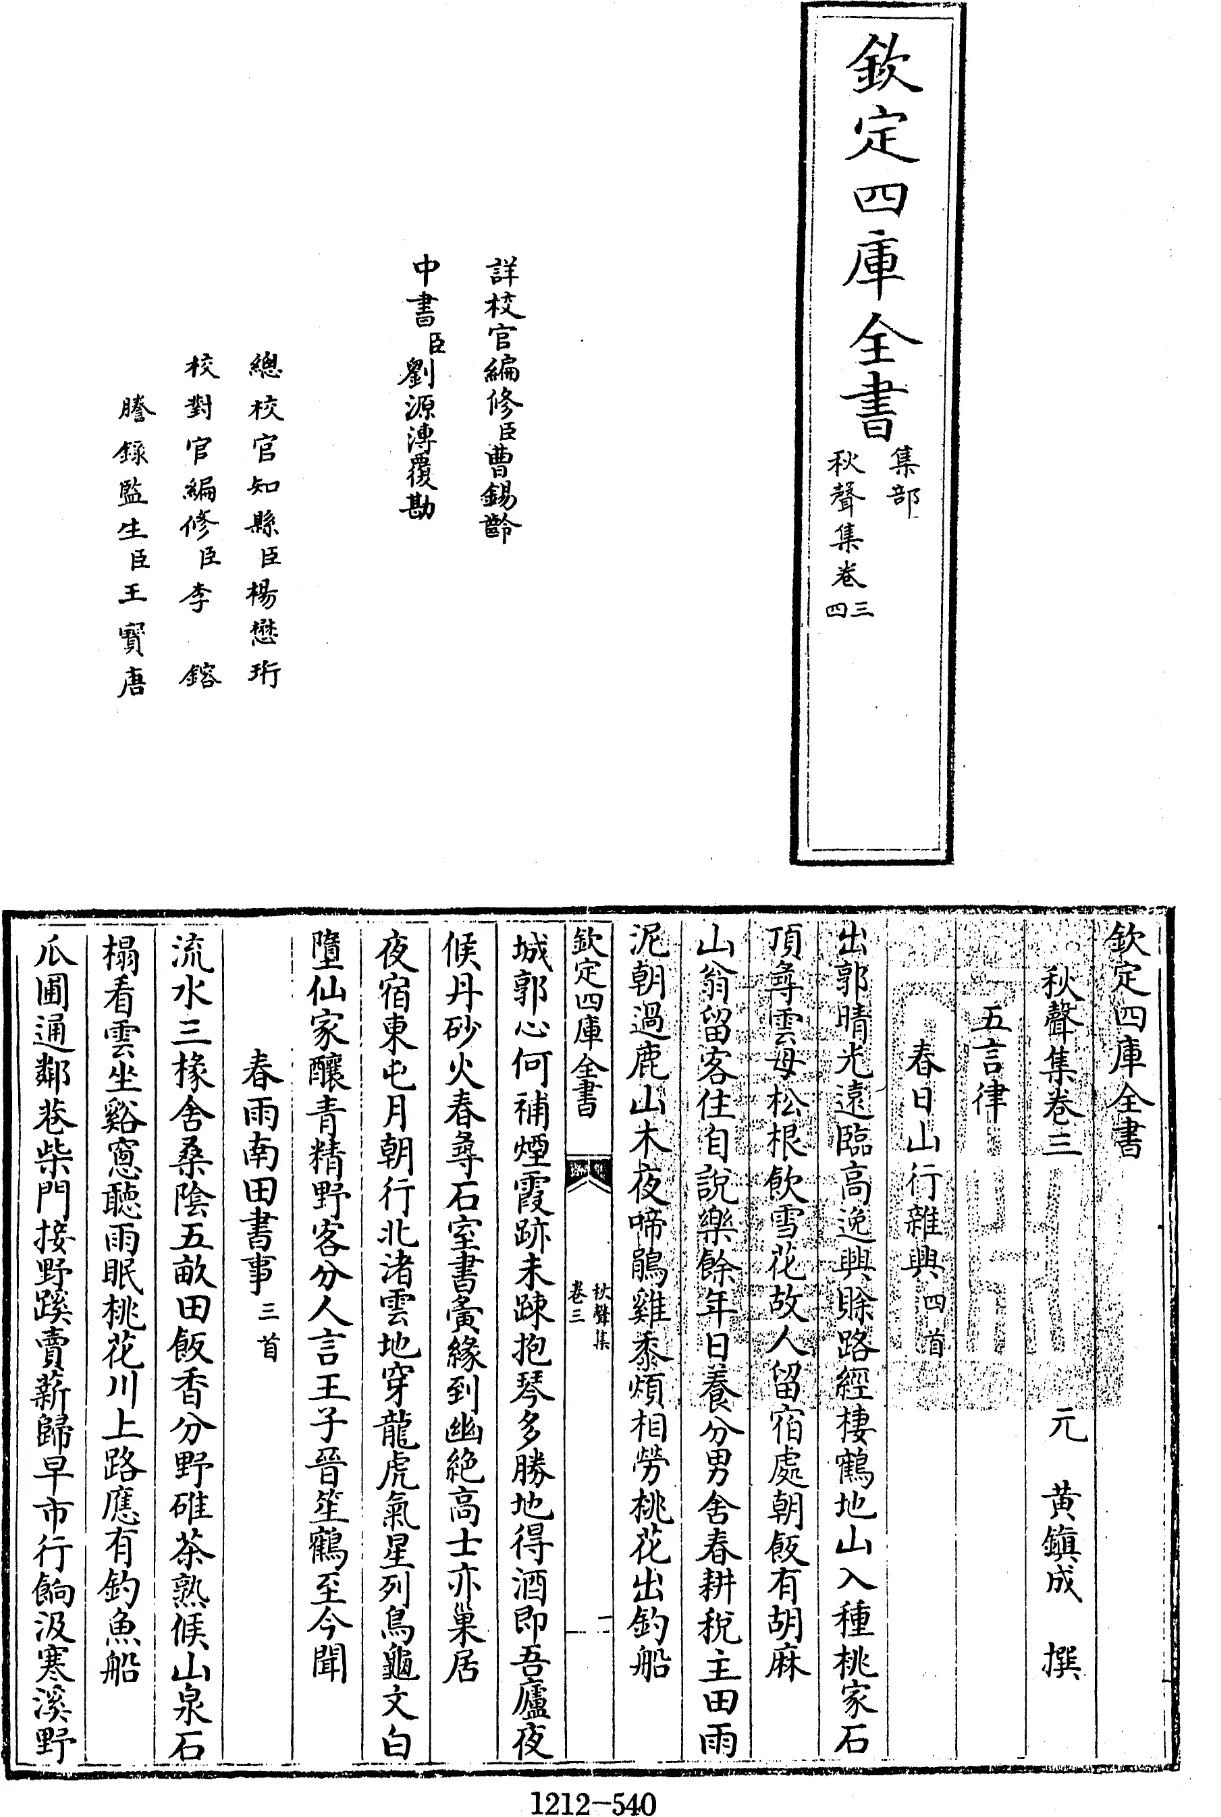 欽定四庫全書
集部
秋聲集卷三四
詳校官編修臣曹錫齡
中書臣劉源溥覆勘
總校官知縣臣楊懋珩
校對官編修臣李鎔
謄錄監生臣王寶唐
欽定四庫全書
秋聲集卷三　元　黃鎮成　撰
五言律
春日山行雜興四首
出郭晴光遠臨高逸興賖路經棲鶴地山入種桃家石
頂尋雲母松根飲雪花故人留宿處朝飯有胡麻
山翁留客住自說樂餘年日養分男舍春耕稅主田雨
泥朝過鹿山木夜啼鵑雞黍煩相勞桃花出釣船
欽定四庫全書
秋聲集
卷三
一
城郭心何補煙霞跡未踈抱琴多勝地得酒即吾廬夜
候丹砂火春尋石室書夤緣到幽絶高士亦巢居
夜宿東屯月朝行北渚雲地穿龍虎氣星列鳥龜文白
墮仙家釀青精野客分人言王子晉笙鶴至今聞
春雨南田書事三首
流水三椽舍桑陰五畝田飯香分野碓茶熟候山泉石
榻看雲坐谿窻聽雨眠桃花川上路應有釣魚船
瓜圃通鄰巷柴門接野蹊賣薪歸早市行餉汲寒溪野
1212-540